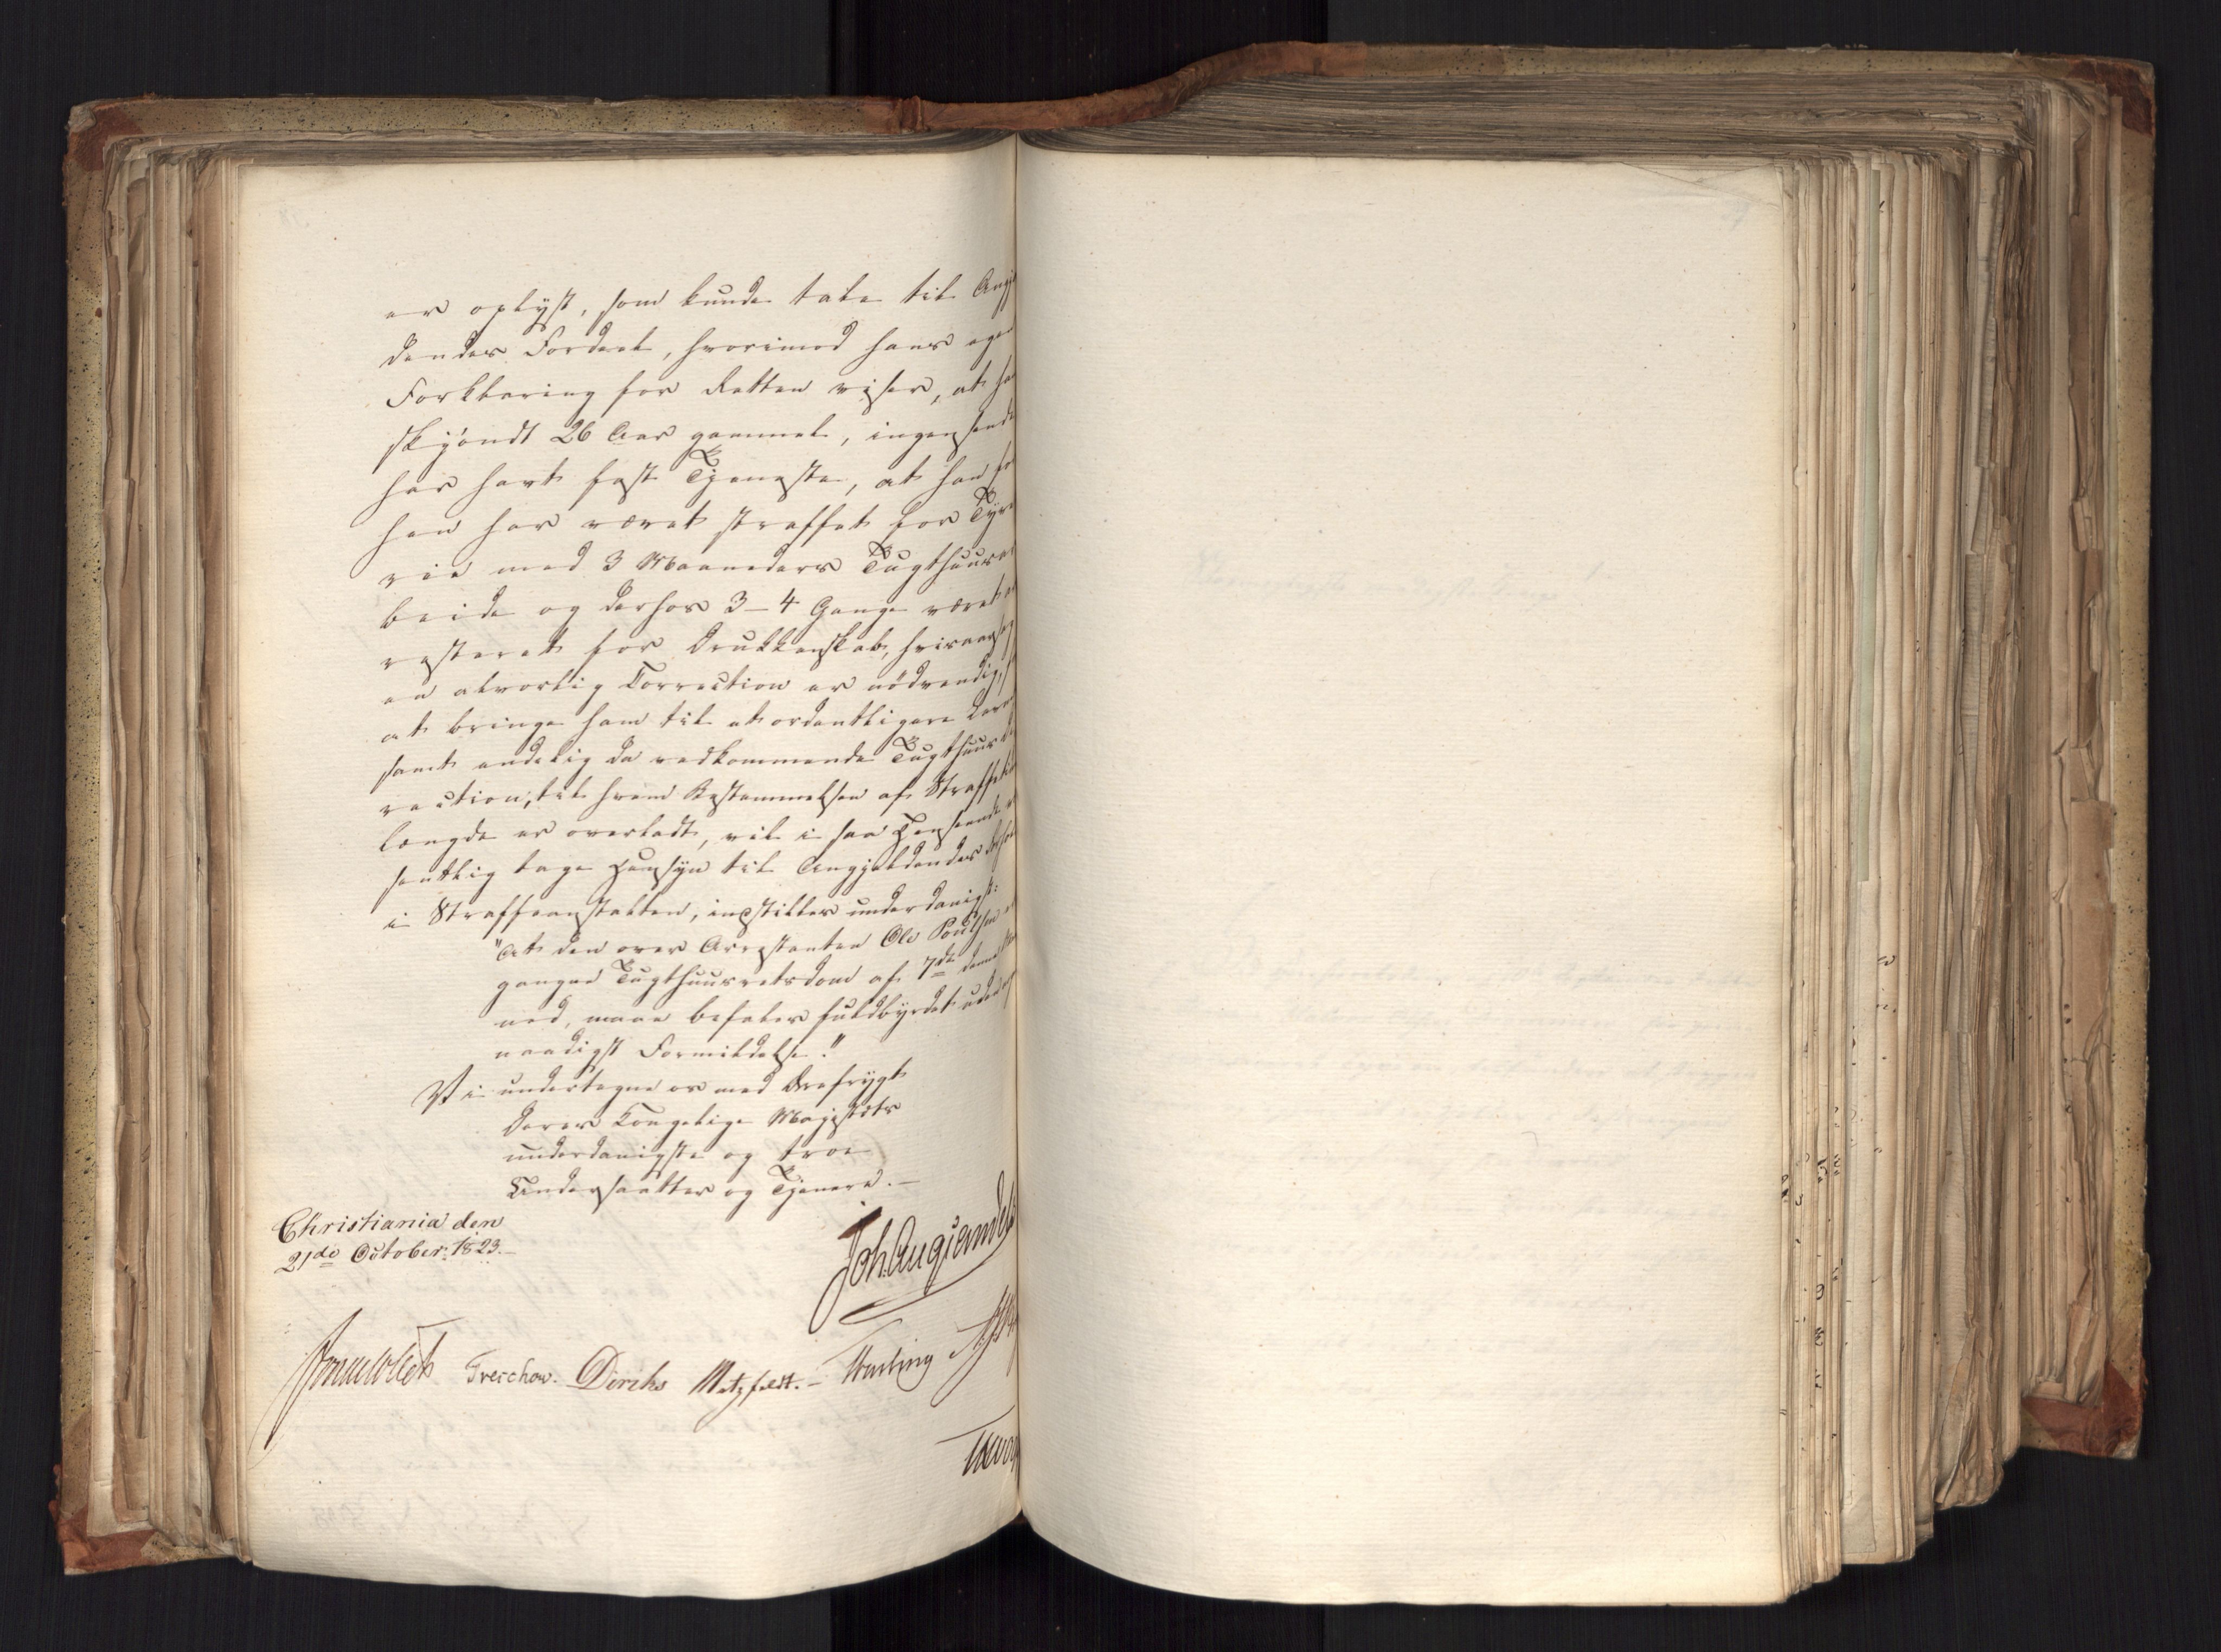 er oplyst, som kunde tale til Angjel
dendes Fordeel, hvorimod hans egen
Forklaring for Retten viser, at han
skjöndt 26 Aar gammel, ingensinde
har havt fast Tjeneste, at han for
hen har været straffet for Tyve
rie med 3 Maaneders Tugthuusar
beide og derhos 3-4 Gange været ar
resteret for Drukkenskab, hvisaarsag
en alvorlig Correction er nödvendig, for
at bringe ham til et ordentligere Levnet
samt endelig da vedkommende Tugthuusdi
rection, til hvem Bestemmelsen af Straffetidens
længde er overladt, vil i saa Henseende væ
sentlig tage Hensyn til Angjeldendes Forhold
i Straffeanstalten, indstilles underdanigst:
"At den over Arrestanten Ole Poulsen er
gangne Tugthuusretsdom af 7de denne Maa
ned, maae befales fuldbyrdet uden
naadigst Formildelse."
Vi undertegne os med Ærefrygt
Deres Kongelige Majestæts
underdanigste og troe
Undersaatter og Tjenere.-
Christiania den
21de October 1823.-
Joh. Aug. Sandels
Sommerfeldt Treschow. Diriks Motzfeldt.-